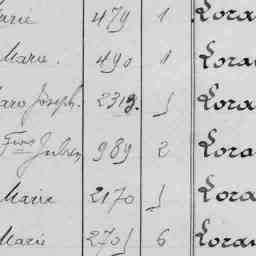 Marie 479 1 Lora
Marie. 490 1 Lora
Joseph. 2319. 1 Lora
Fros 989 2 Lora
Marie 2170 1 Lora
Marie 2701 6 Loran